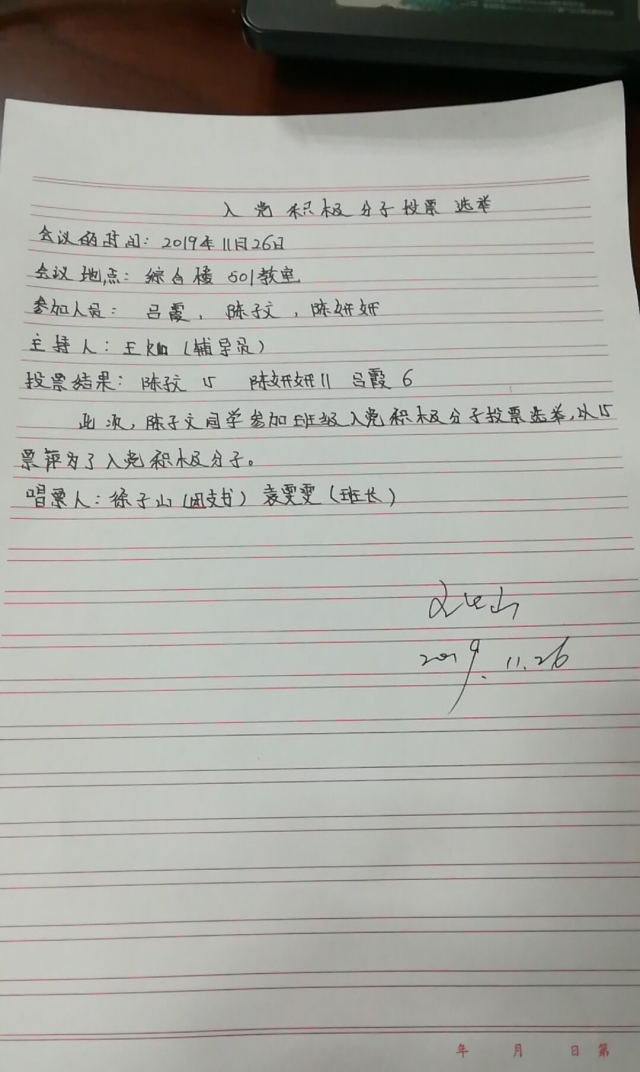 入党积极分子投票选举
会议的时间：2019年11月26日
会议地点：综合楼601教室
参加人员：吕霞，陈子文，陈妍妍
主持人：王（辅导员）
投票结果：陈子文 15 陈妍妍11 吕霞 6
此次，陈子文同学参加班级入党积极分子投票选举，以15
票荐为了入党积极分子。
唱票人：徐子山（团支书）袁雯雯（班长）
2019.11.26
年 月 日 第